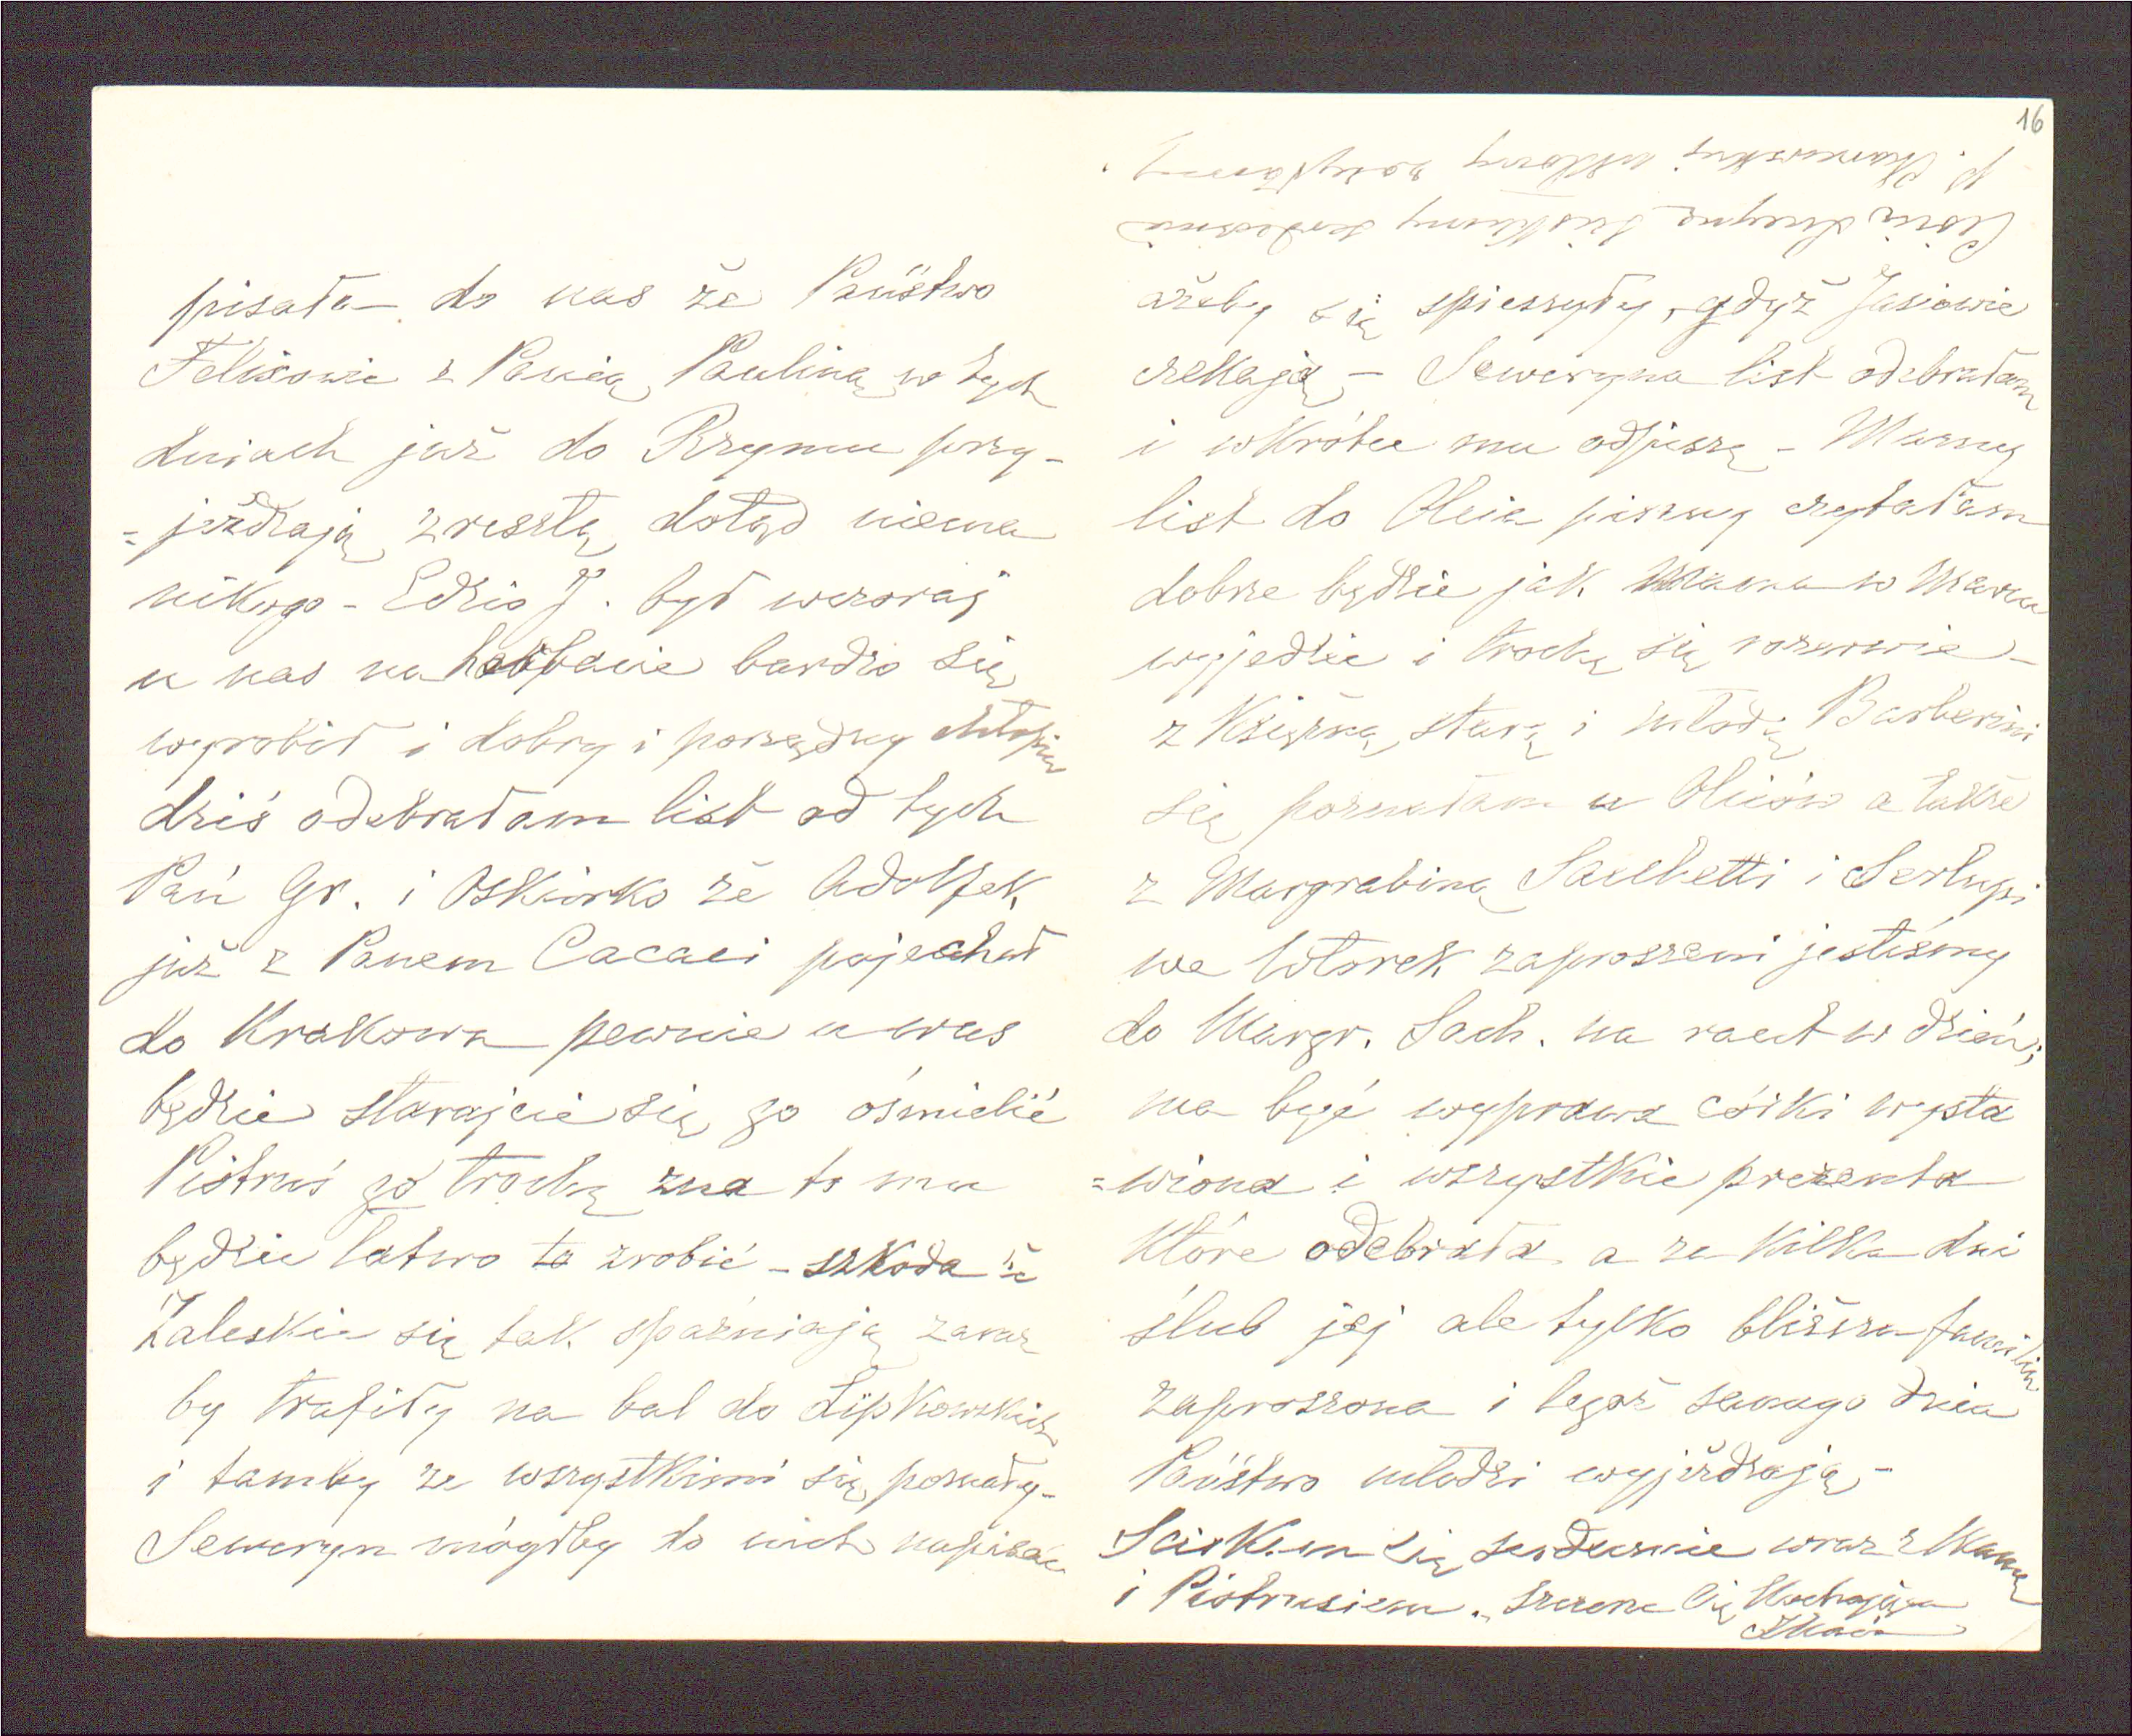 pisała do nas że Państwo
Felixowie z Panią Pauliną w tych
dniach już do Rzymu przy-
=jeżdżają zresztą dotąd niema
nikogo - Edzio J. był wczoraj
u nas na herbacie bardzo się
wyrobił i dobry i porządny chłopiec
dziś odebrałam list od tych
Pań Gr. i Oskierko że Adolfek
już z Panem Cacaci pojechał
do Krakowa pewnie u was
będzie starajcie się go ośmielić
Piotruś go trochę zna to mu
będzie łatwo to zrobić - szkoda że
Zaleskie się tak spaźniają zaraz
by trafiły na bal do Lipkowskich
i tamby ze wszystkimi się poznały -
Seweryn mógłby do nich napisać
16
ażeby się spieszyły, gdyż Jasiowie
czekają - Seweryna list odebrałam
i wkrótce mu odpiszę - Mamy
list do Olesia pisany czytałam
dobrze będzie jak Mama w Marcu
wyjedzie i trochę się rozerwie -
z Księżną starą i młodą Barberini
się poznałam u Olesiów a także
z Margrabiną Sacchetti i Serlupi
we Wtorek zaproszeni jesteśmy
do Margr. Sach. na raut w dzień;
ma być wyprawa córki wysta
=wiona i wszystkie prezenta
które odebrała a za kilka dni
ślub jej ale tylko bliższa familia
zaproszona i tegoż samego dnia
Państwo młodzi wyjeżdżają -
Sciskam Cię serdecznie wraz z Mamą
i Piotrusiem. szczerze Cię Kochająca
ściskamy serdecznie
p. ukłony zasyłamy.